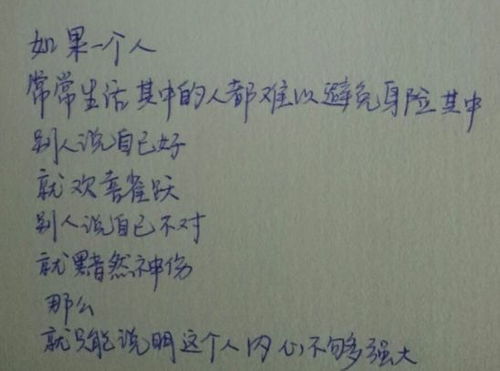 如果一个人
常常生活其中的人都难以避免身险其中
别人说自己好
就欢喜雀跃
别人说自己不对
就黯然神伤
那么
就只能说明这个人内心不够多强大